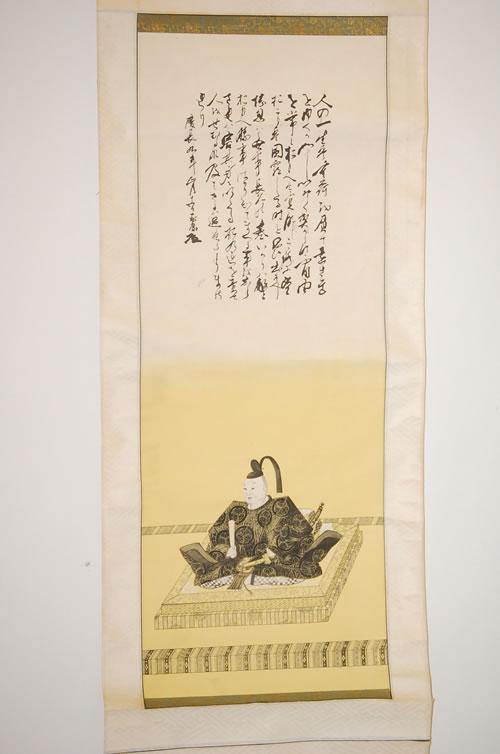 人の一生は重荷を負て遠き道
をゆくがごとしいそぐべからず不自由
を常とおもへば不足なしこころに望
おこらば困窮したる時を思ひ出すべし
堪忍は無事長久の基いかりは敵
とおもへ勝事ばかり知てまくる事をしら
ざれば害其身にいたるおのれを責て
人をせむるな及ばざるは過たるよりまさ
れり